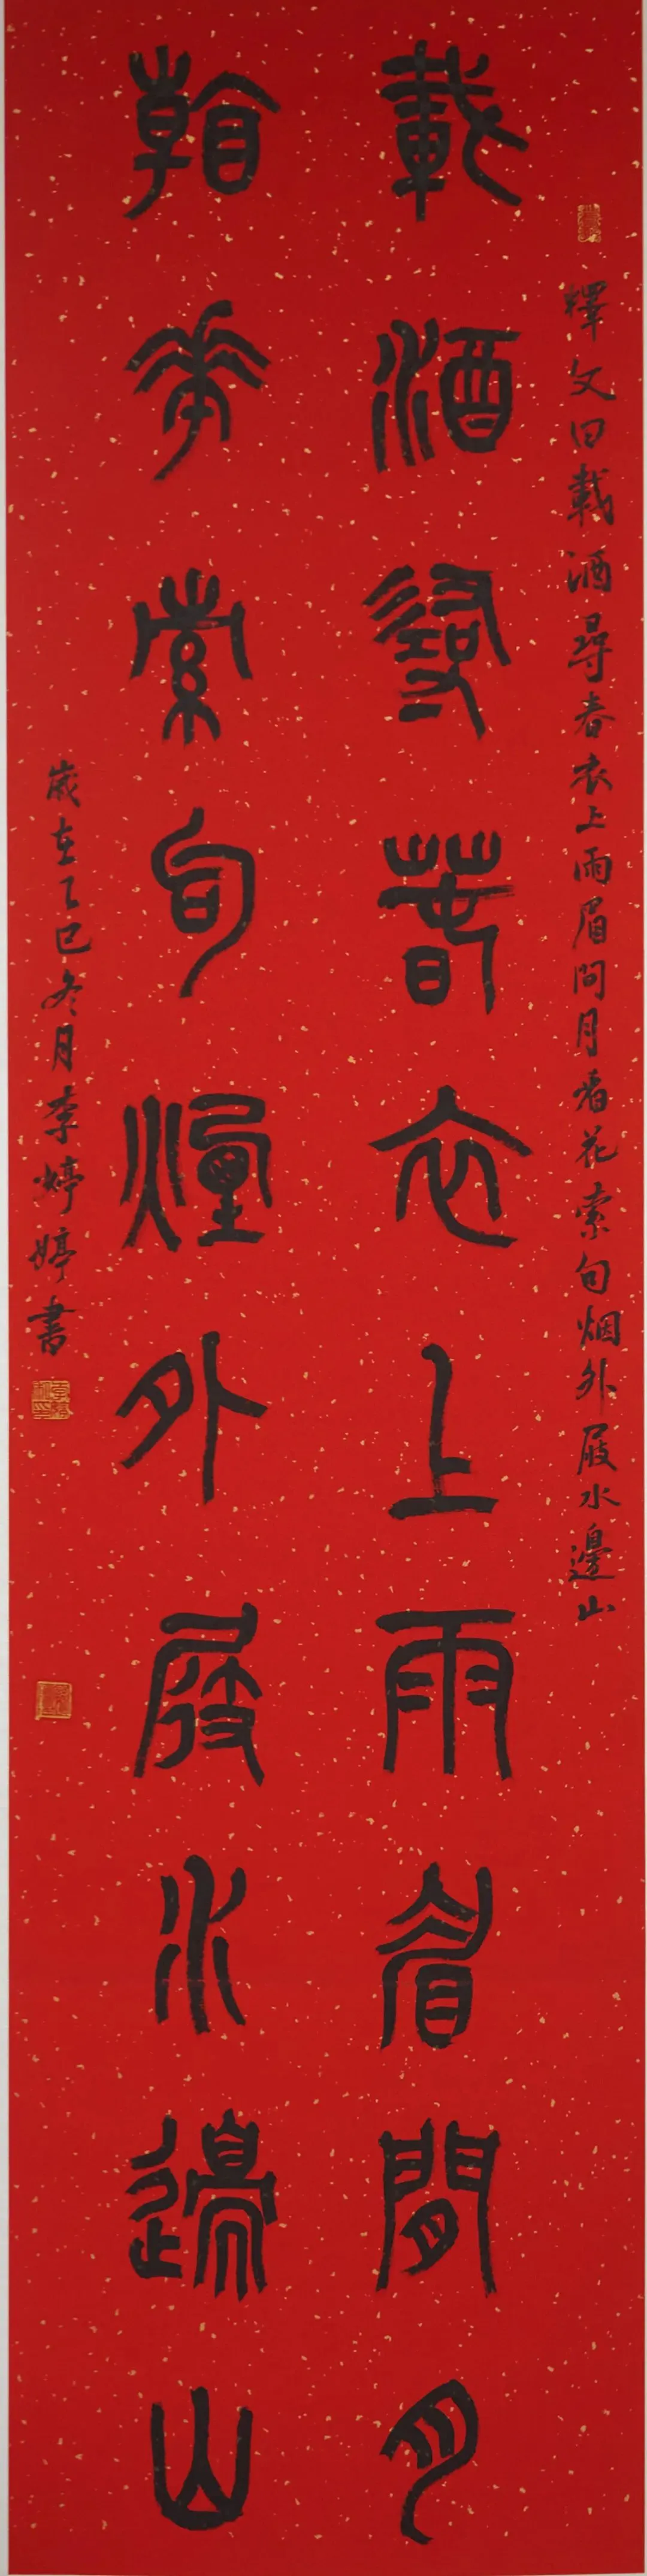 釋文曰載酒尋春衣上雨眉間月看花索句烟外屐水邊山
載酒尋春衣上雨眉間月
看花索句煙外屐水邊山
歲在乙巳冬月李婷婷書